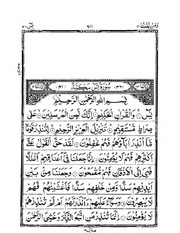 سُوْرَةُ يٰسٓ مَكِّيَّةٌ
بِسْمِ اللهِ الرَّحْمٰنِ الرَّحِيْمِ
يٰسٓ ۚ وَالْقُرْاٰنِ الْحَكِيْمِ ۙ اِنَّكَ لَمِنَ الْمُرْسَلِيْنَ ۙ عَلٰى
صِرَاطٍ مُّسْتَقِيْمٍ ؕ تَنْزِيْلَ الْعَزِيْزِ الرَّحِيْمِ ۙ لِتُنْذِرَ قَوْمًا
مَّاۤ اُنْذِرَ اٰبَآؤُهُمْ فَهُمْ غٰفِلُوْنَ لَقَدْ حَقَّ الْقَوْلُ عَلٰۤى
اَكْثَرِهِمْ فَهُمْ لَا يُؤْمِنُوْنَ اِنَّا جَعَلْنَا فِيْۤ اَعْنَاقِهِمْ اَغْلٰلًا
فَهِيَ اِلَى الْاَذْقَانِ فَهُمْ مُّقْمَحُوْنَ وَجَعَلْنَا مِنْۢ بَيْنِ
اَيْدِيْهِمْ سَدًّا وَّمِنْ خَلْفِهِمْ سَدًّا فَاَغْشَيْنٰهُمْ فَهُمْ
لَا يُبْصِرُوْنَ وَسَوَآءٌ عَلَيْهِمْ ءَاَنْذَرْتَهُمْ اَمْ لَمْ تُنْذِرْهُمْ
لَا يُؤْمِنُوْنَ اِنَّمَا تُنْذِرُ مَنِ اتَّبَعَ الذِّكْرَ وَخَشِيَ الرَّحْمٰنَ